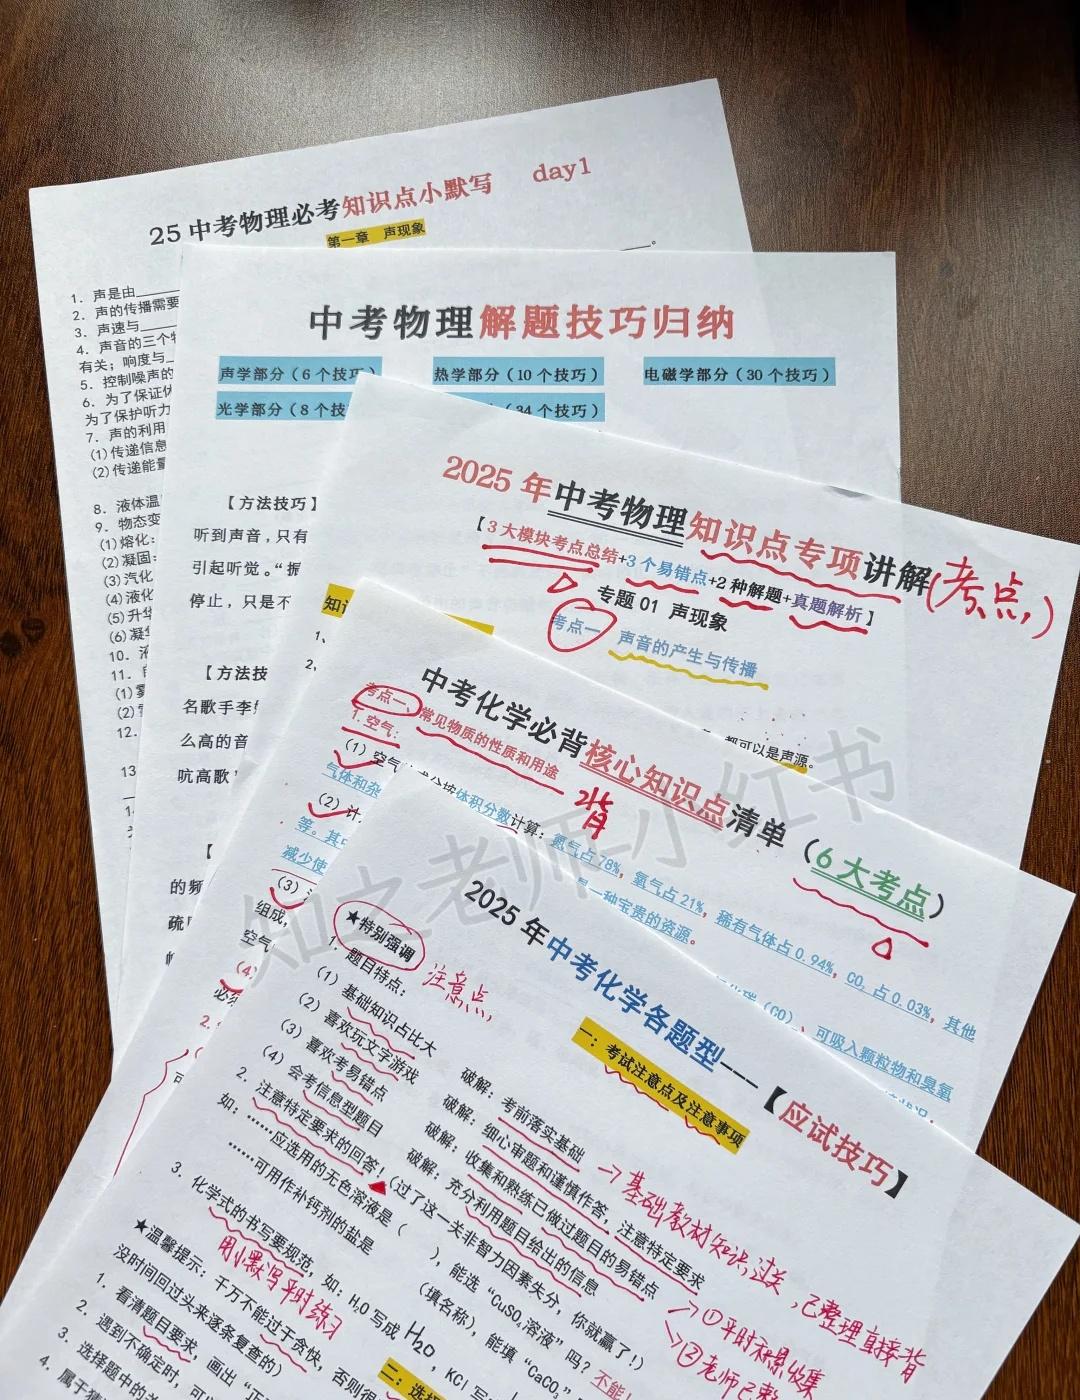 25 中考物理必考知识点小默写 day1
第一章 声现象
1. 声是由
2. 声的传播需要
3. 声速与
4. 声音的三个特
有关；响度与
5. 控制噪声的
6. 为了保证休
为了保护听力
7. 声的利用
(1)传递信息
(2)传递能量
8. 液体温
9. 物态变
(1)熔化：
(2)凝固：
(3)汽化
(4)液化
(5)升华
(6)凝华
10. 液
11.
(1)雾
(2)
12.
13
中考物理解题技巧归纳
声学部分（6 个技巧）
热学部分（10 个技巧）
电磁学部分（30 个技巧）
光学部分（8 个技
（34 个技巧）
【方法技巧】
听到声音，只有
引起听觉。“振
停止，只是不
【方法技
名歌手李
么高的音
吭高歌”
【
的频
疏
2025 年中考物理知识点专项讲解(考点,)
【3 大模块考点总结+3 个易错点+2 种解题+真题解析】
专题 01 声现象
考点一 声音的产生与传播
知识
1、
2,
都可以是声源。
中考化学必背核心知识点清单（6 大考点）
考点一、常见物质的性质和用途
背
1. 空气：
（1）空气成分按体积分数计算：氮气占 78%，氧气占 21%，稀有气体占 0.94%，CO₂ 占 0.03%，其他
气体和杂
（2）计
是一种宝贵的资源。
等。其中
减少使
（CO）、可吸入颗粒物和臭氧
（3）
组成，
空气
（4）
必须
2.
知之老师-小红书
2025 年中考化学各题型---【应试技巧】
一：考试注意点及注意事项
★特别强调
注意点,
1. 题目特点：
（1）基础知识占比大 破解：考前落实基础 → 基础教材知识,过关,已整理直接背
（2）喜欢玩文字游戏 破解：细心审题和谨慎作答，注意特定要求
（3）喜欢考易错点 破解：收集和熟练已做过题目的易错点 → ①平时积累收集
（4）会考信息型题目 破解：充分利用题目给出的信息 ↘ ②老师已整
2. 注意特定要求的回答！（过了这一关非智力因素失分，你就赢了!）
如：……应选用的无色溶液是（ ），能选“CuSO₄溶液”吗？不能!
……可用作补钙剂的盐是 （填名称），能填“CaCO₃”
3. 化学式的书写要规范，如：H₂O 写成 H₂O，KCl 写
用小默写平时练习
★温馨提示：千万不能过于贪快，否则很
没时间回过头来逐条复查的）
二：选择
1. 看清题目要求，画出“正
2. 遇到不确定时，可
3. 选择题中的
4. 属于猜